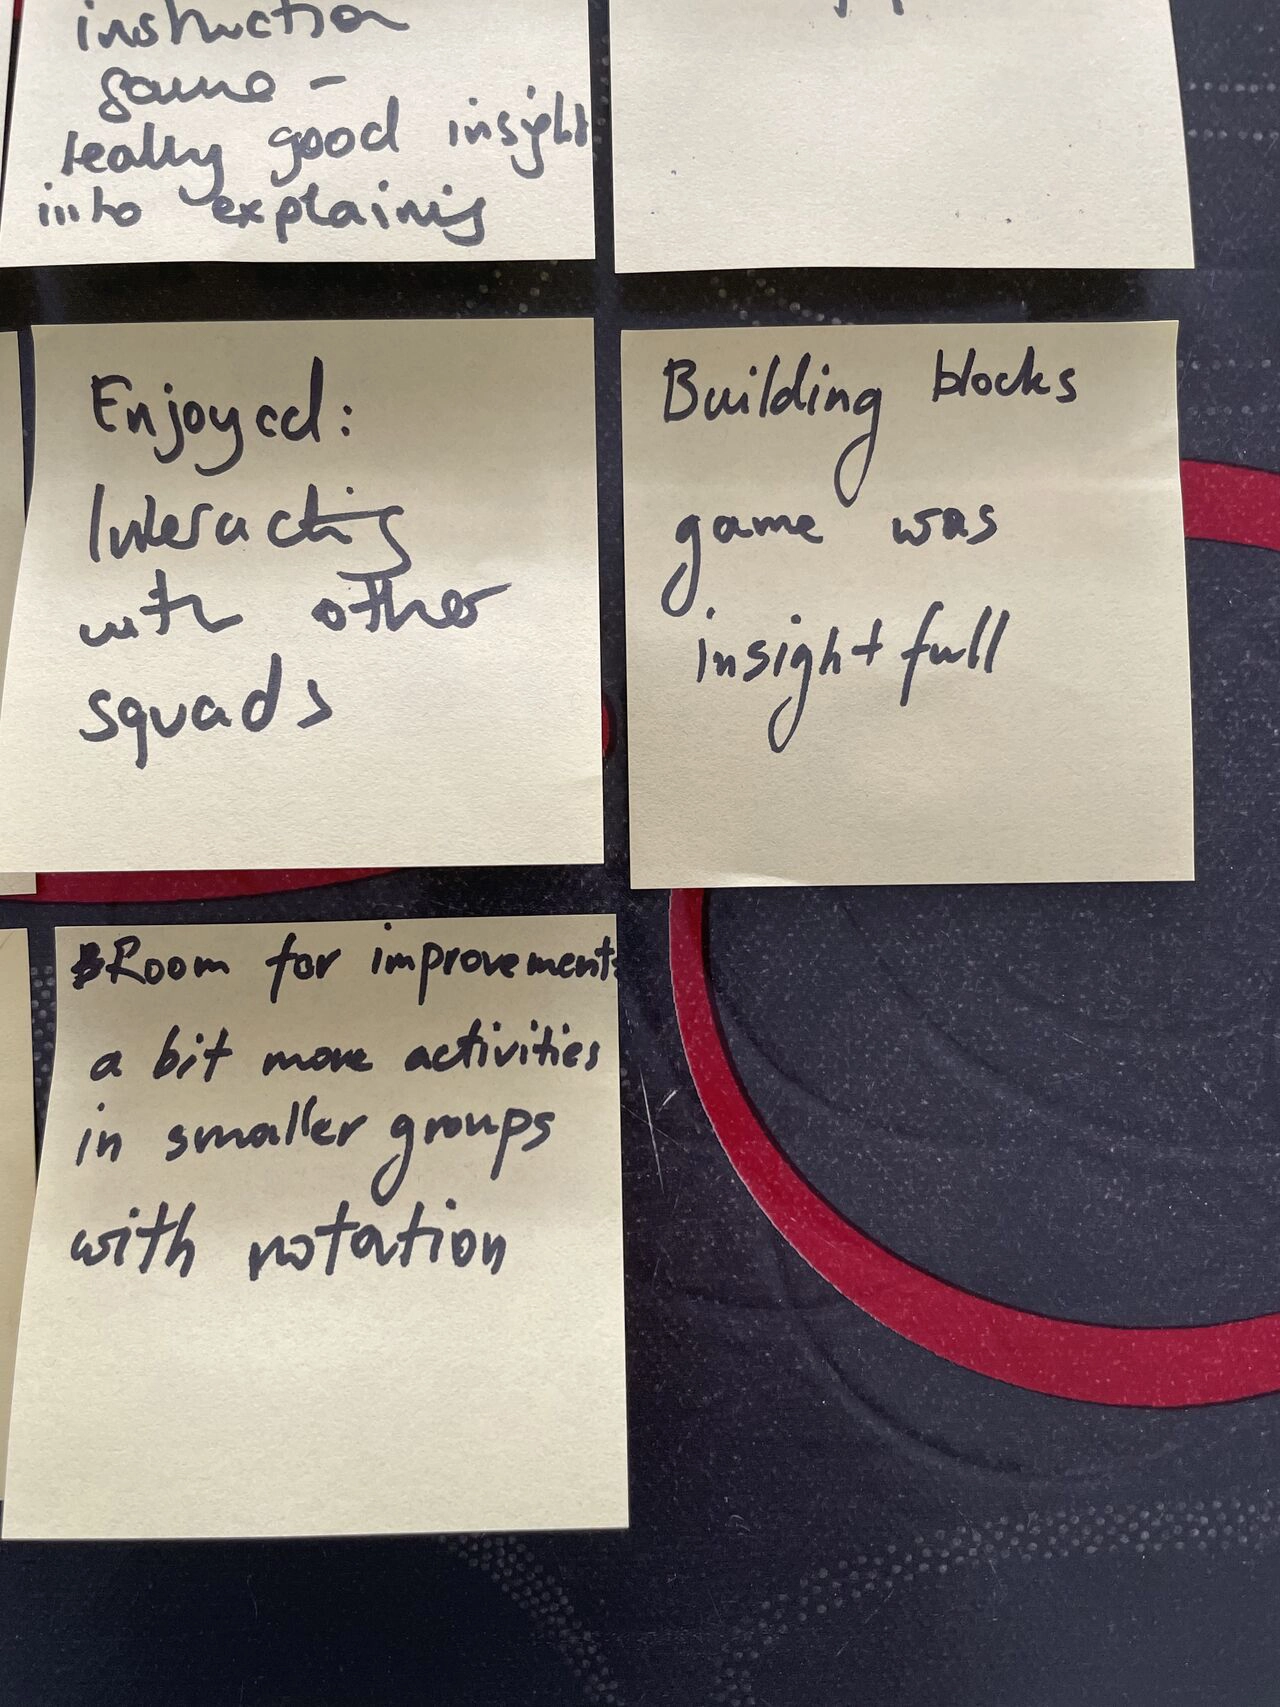 instruction
game -
really good insight
into explaining
Enjoyed:
Interacting
with other
squads
Building blocks
game was
insightfull
Room for improvement:
a bit more activities
in smaller groups
with notation